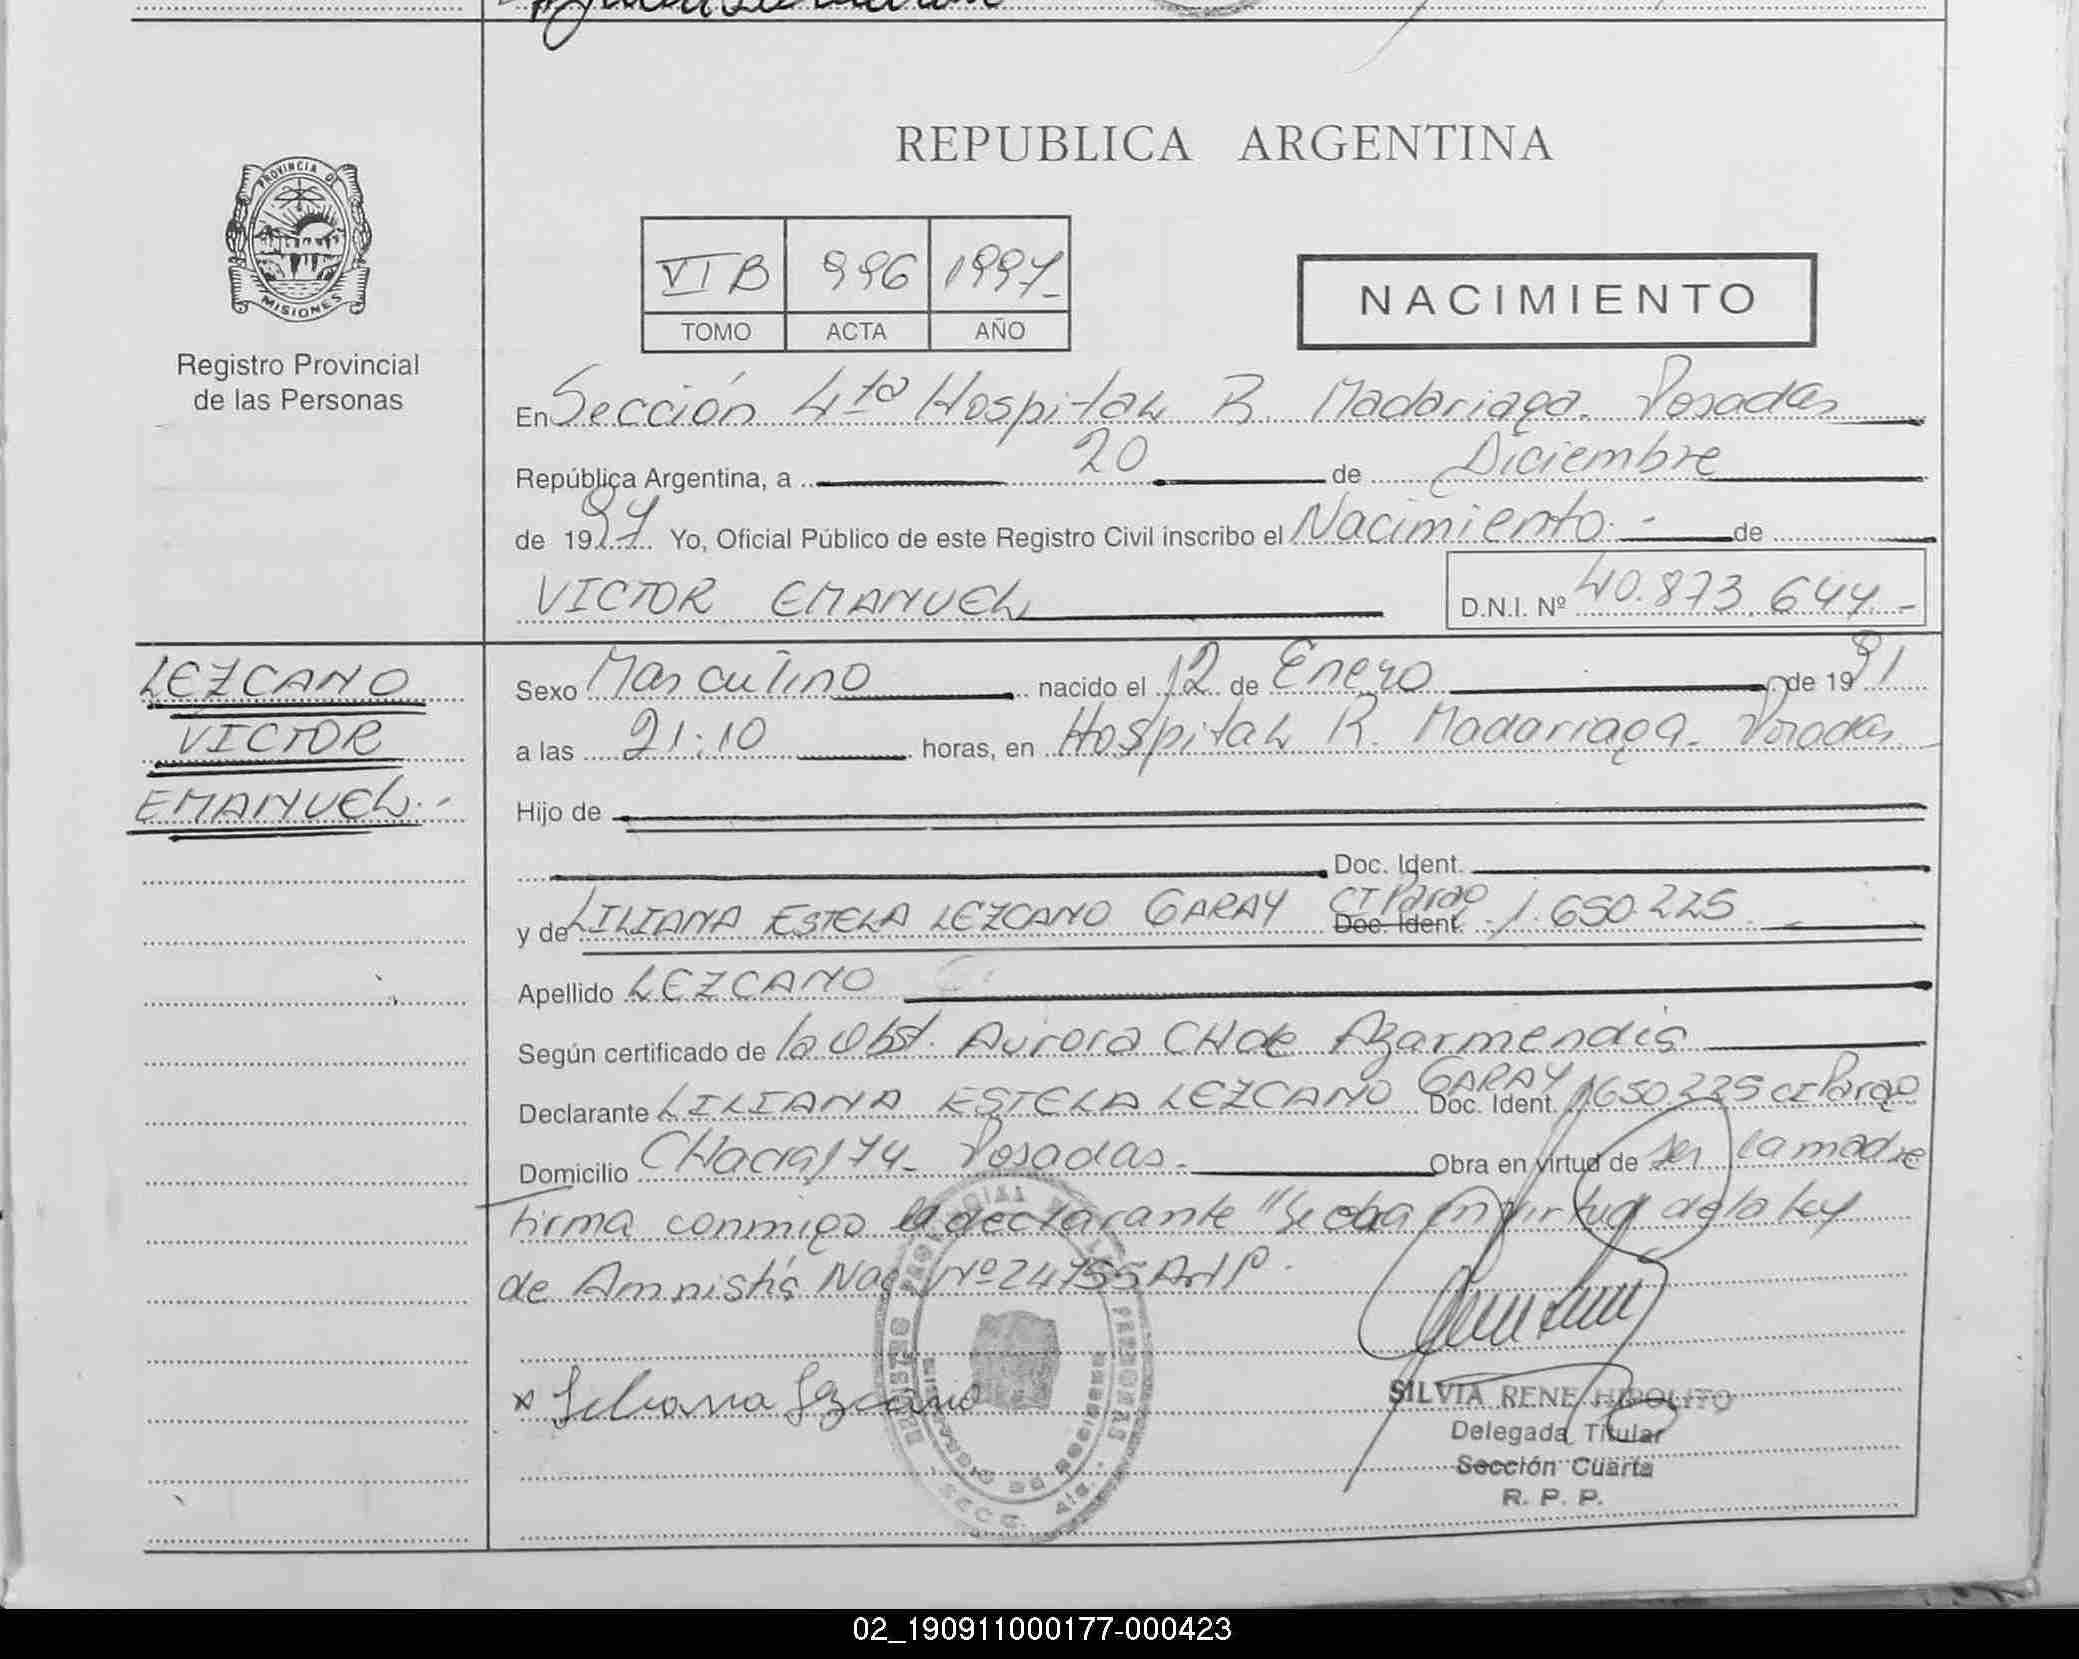 PROVINCIA DE
MISIONES
Registro Provincial
de las Personas
REPUBLICA ARGENTINA
VI B 996 1997
TOMO ACTA AÑO
NACIMIENTO
En Sección 4ta Hospital R. Madariaga. Posadas
República Argentina, a 20 de Diciembre
de 1997 Yo, Oficial Público de este Registro Civil inscribo el Nacimiento.- de
VICTOR EMANUEL
D.N.I. Nº 40.873.644.-
LEZCANO
VICTOR
EMANUEL.-
Sexo Masculino nacido el 12 de Enero de 1991
a las 21:10 horas, en Hospital R. Madariaga. Posadas
Hijo de
Doc. Ident.
y de LILIANA ESTELA LEZCANO GARAY Doc. Ident. CI Parag 1.650.225
Apellido LEZCANO
Según certificado de la Obst. Aurora CH de Azarmendia
Declarante LILIANA ESTELA LEZCANO GARAY Doc. Ident. 1650225 CI Parag
Domicilio CHacra 174- Posadas.- Obra en virtud de ser la madre
Firma conmigo la declarante "Se obra en virtud de la ley
de Amnistía Nac Nº 24755
x Liliana Lezcano
SILVIA RENE HIPOLITO
Delegada Titular
Sección Cuarta
R. P. P.
02_190911000177-000423